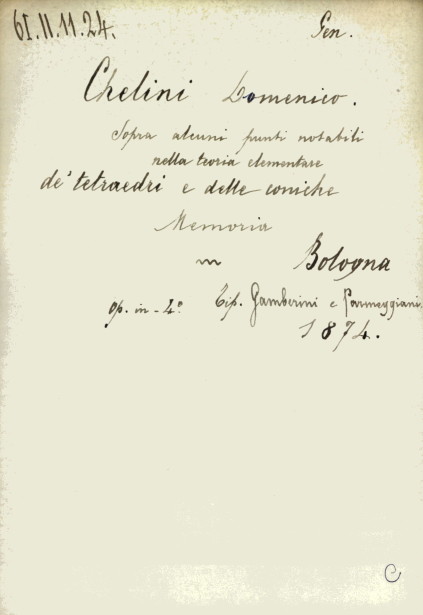 61.II.11.24.
Gen.
Chelini Domenico.
Sopra alcuni punti notabili
nella teoria elementare
de' tetraedri e delle coniche
Memoria
Bologna
op. in-4° Tip. Gamberini e Parmeggiani.
1874.
C